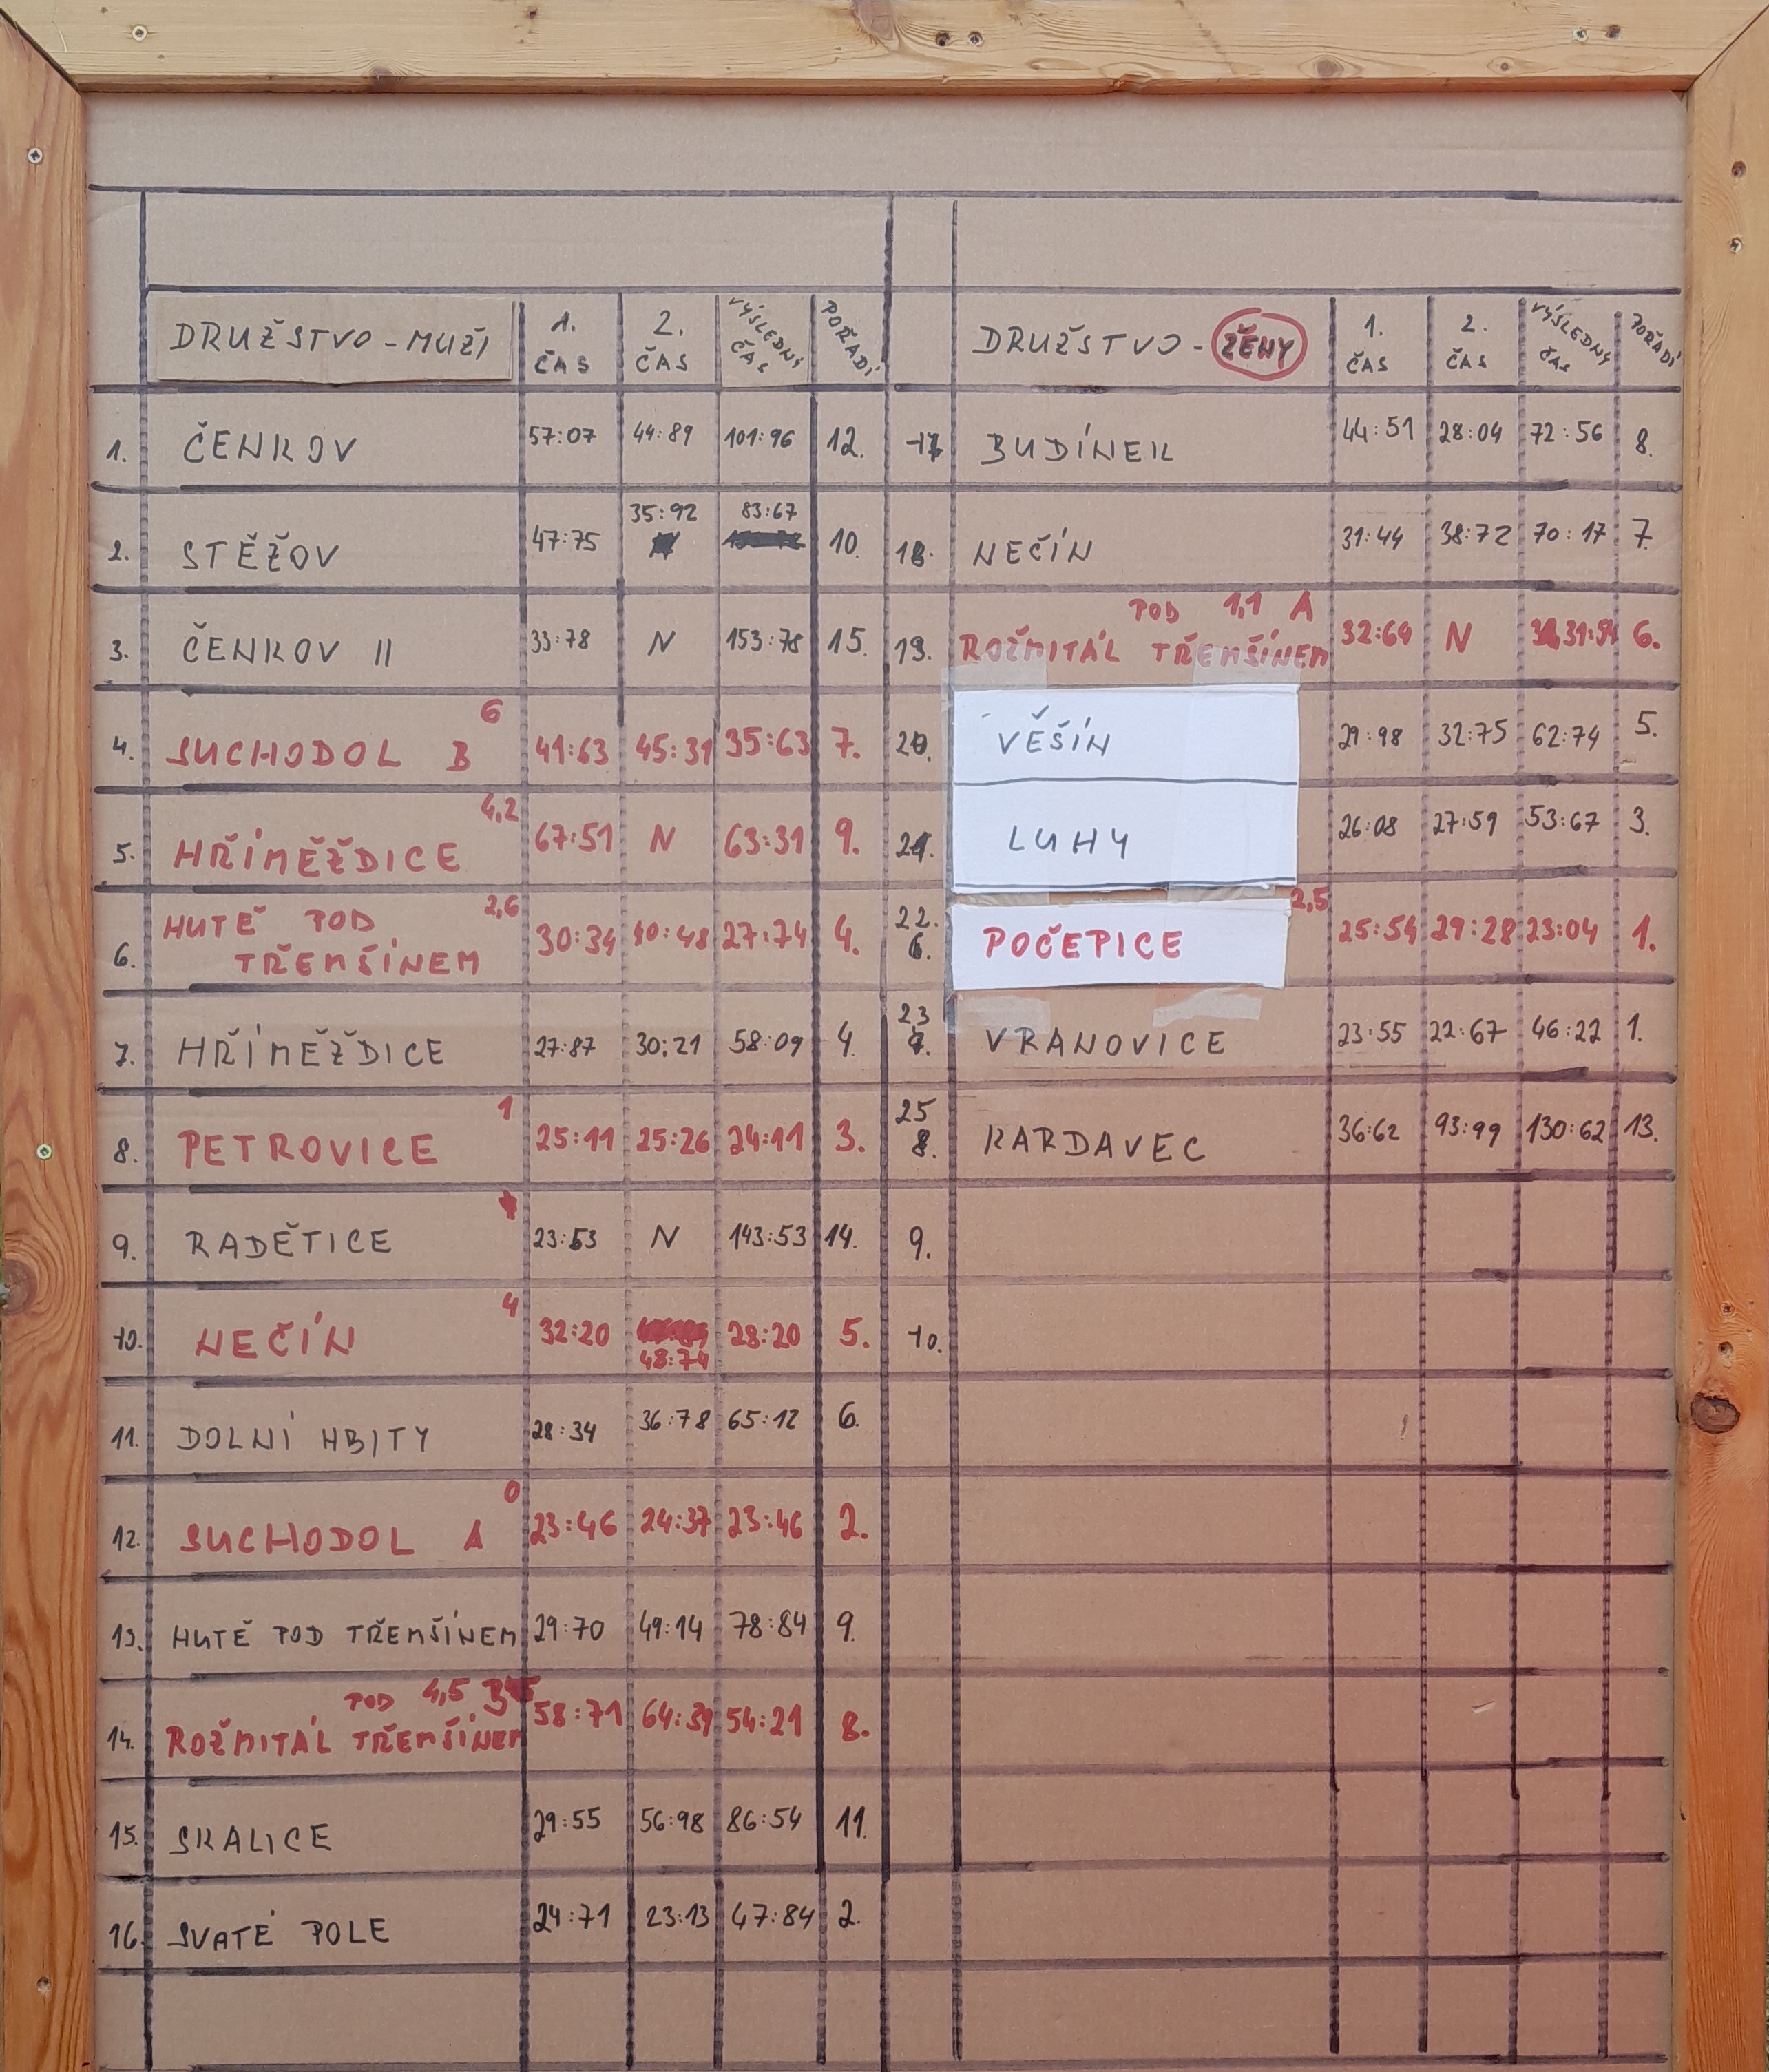 DRUŽSTVO - MUŽI 1. ČAS 2. ČAS VÝSLEDNÝ ČAS POŘADÍ DRUŽSTVO - ŽENY 1. ČAS 2. ČAS VÝSLEDNÝ ČAS POŘADÍ
1. ČENKOV 57:07 44:89 101:96 12. 17 BUDÍNEK 44:51 28:04 72:56 8.
2. STĚŽOV 47:75 35:92 83:67 10. 18. NEČÍN 31:44 38:72 70:17 7.
3. ČENKOV II 33:78 N 153:78 15. 19. ROŽMITÁL POD TŘEMŠÍNEM 1,1 A 32:64 N 31:54 6.
4. SUCHODOL B 6 41:63 45:31 35:63 7. 20. VĚŠÍN 29:98 32:75 62:74 5.
5. HŘÍMĚŽDICE 4,2 67:51 N 63:31 9. 21. LUHY 26:08 27:59 53:67 3.
6. HUTĚ POD TŘEMŠÍNEM 2,6 30:34 40:48 27:74 4. 22. 6. POČEPICE 2,5 25:54 29:28 23:04 1.
7. HŘÍMĚŽDICE 27:87 30:21 58:09 4. 23 7. VRANOVICE 23:55 22:67 46:22 1.
8. PETROVICE 1 25:11 25:26 24:11 3. 25 8. KARDAVEC 36:62 93:99 130:62 13.
9. RADĚTICE 23:53 N 143:53 14. 9.
10. NEČÍN 4 32:20 48:74 28:20 5. 10.
11. DOLNÍ HBITY 28:34 36:78 65:12 6.
12. SUCHODOL A 0 23:46 24:37 23:46 2.
13. HUTĚ POD TŘEMŠÍNEM 29:70 49:14 78:84 9.
14. ROŽMITÁL POD TŘEMŠÍNEM 4,5 B 58:71 64:39 54:21 8.
15. SKALICE 29:55 56:98 86:54 11.
16. SVATÉ POLE 24:71 23:13 47:84 2.